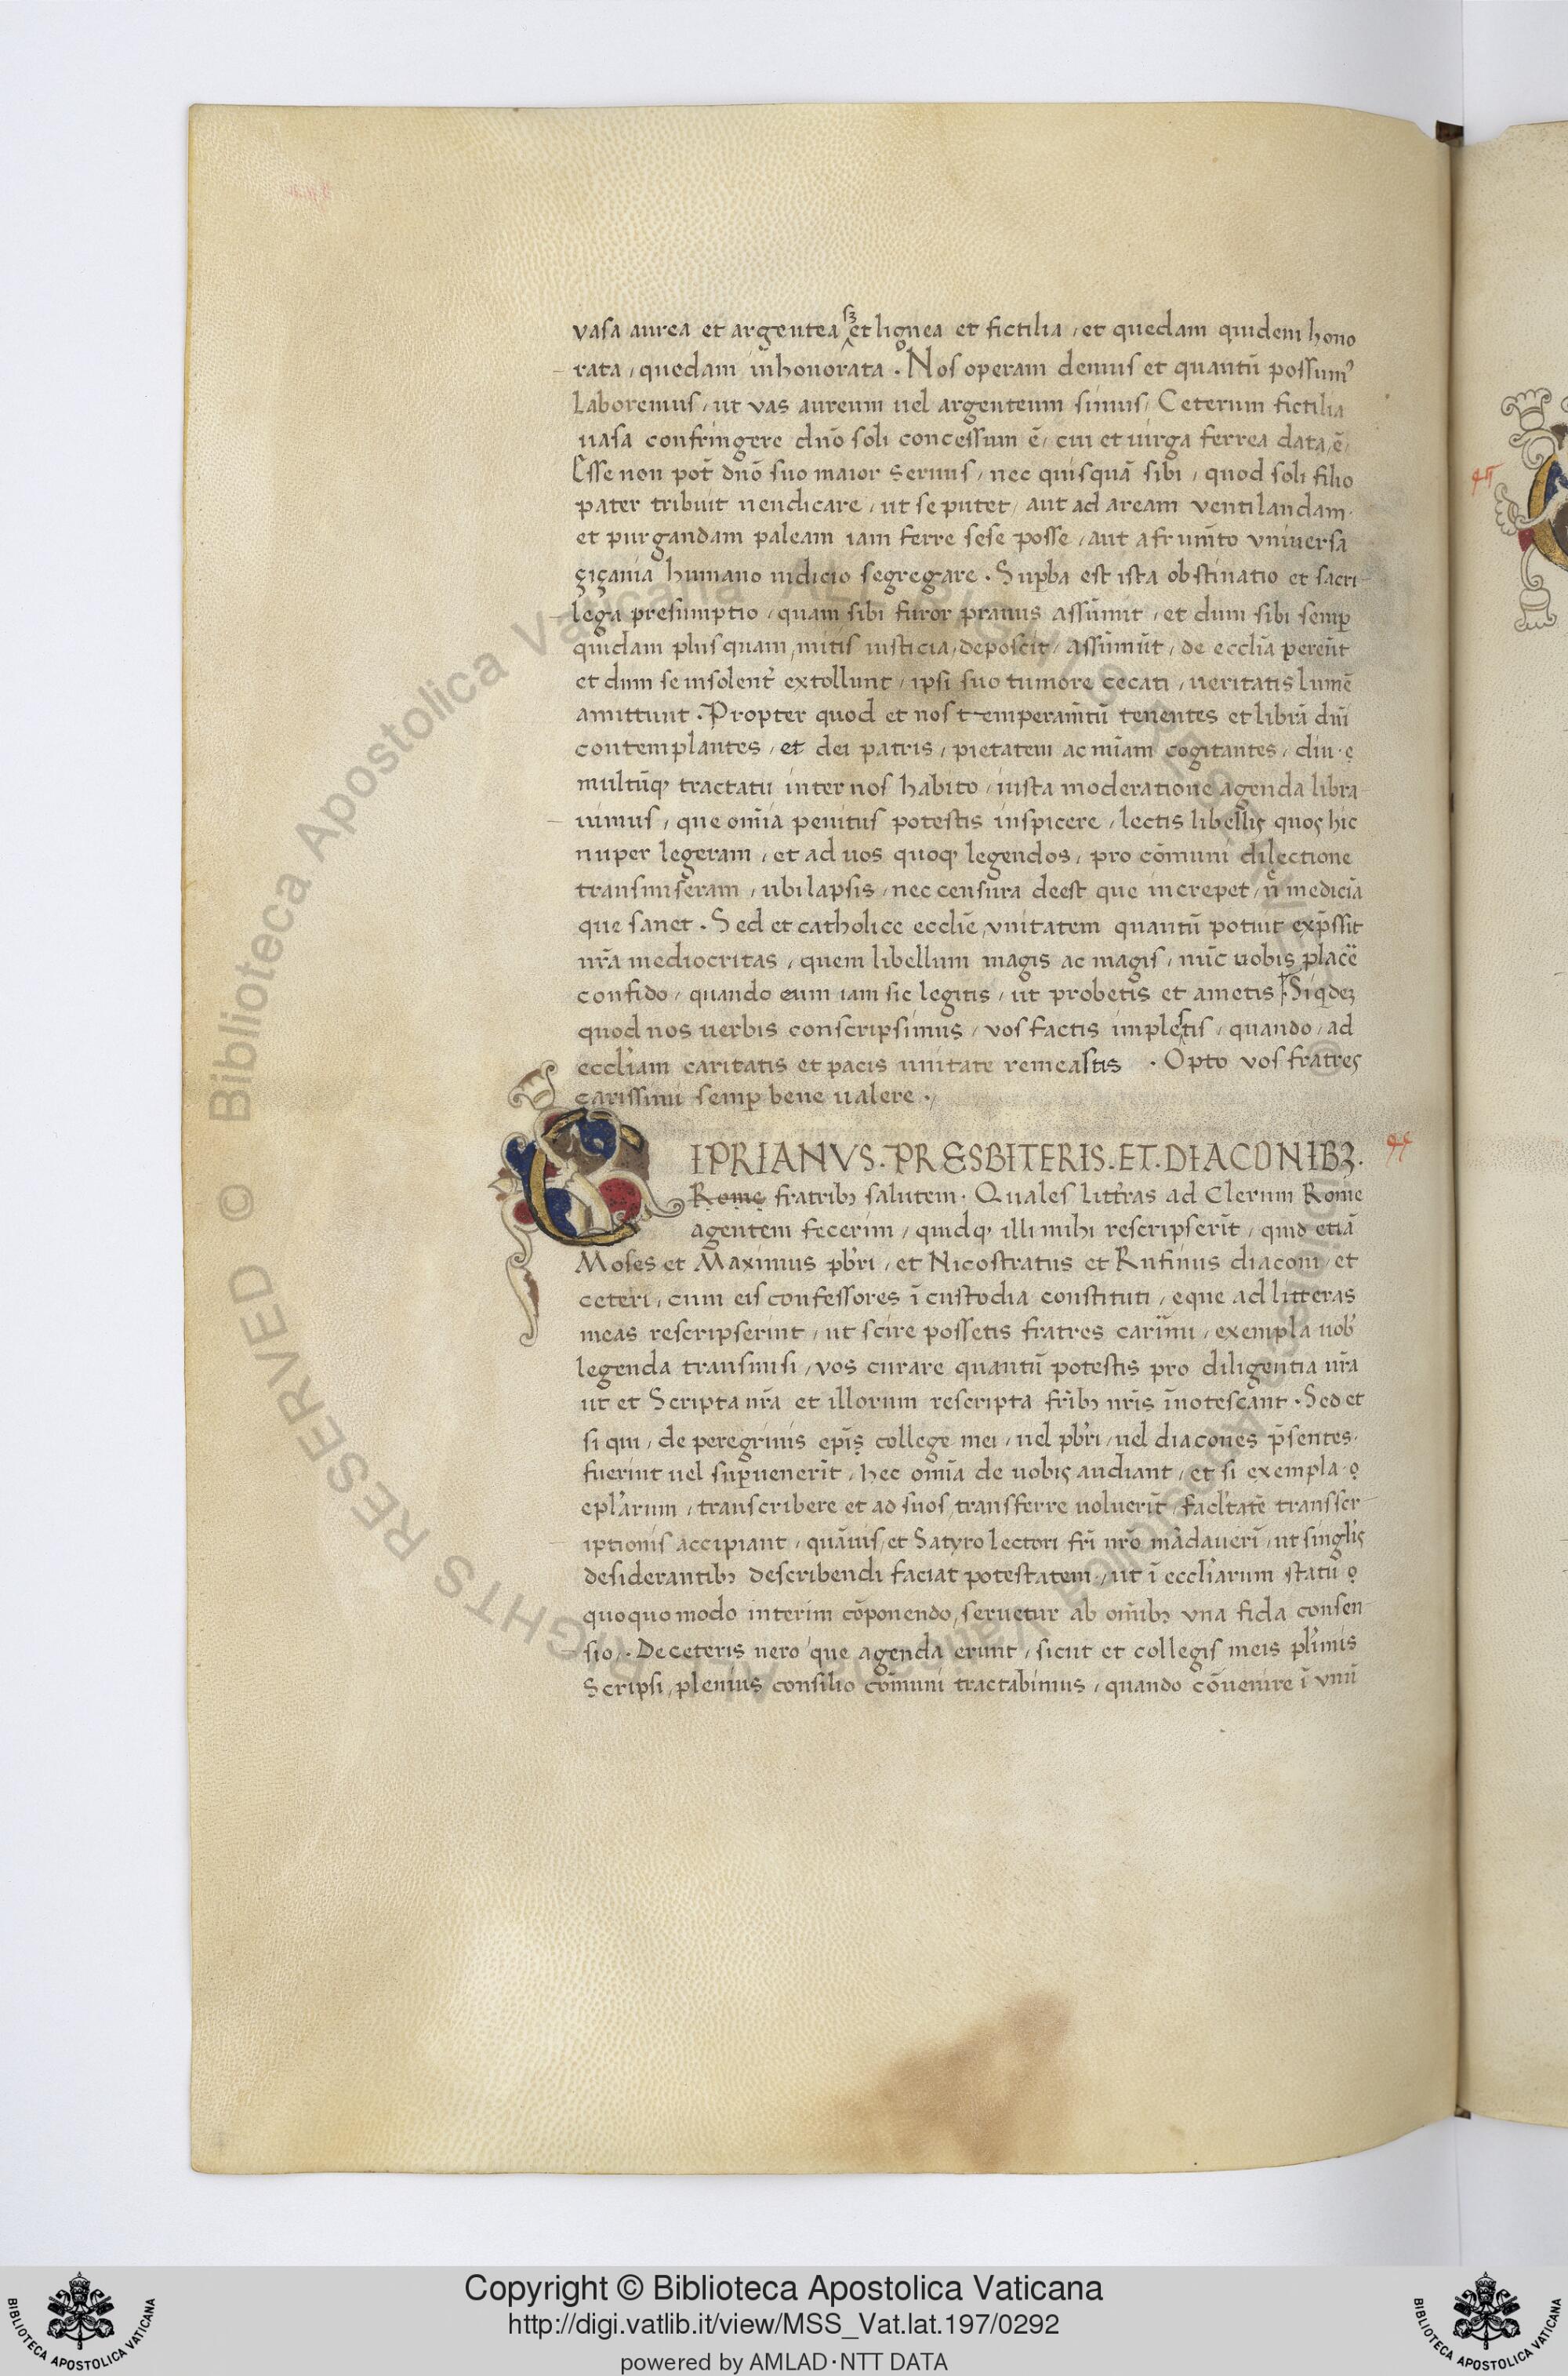 vasa aurea et argentea sꝫ et lignea et fictilia, et quedam quidem hono
rata, quedam inhonorata. Nos operam demus et quantū possumꝰ
Laboremus, ut vas aureum uel argenteum simus, Ceterum fictilia
uasa confringere dnō soli concessum ē, cui et uirga ferrea data ē,
Esse non pot̄ dnō suo maior seruus, nec quisquā sibi, quod soli filio
pater tribuit uendicare, ut se putet, aut ad aream ventilandam
et purgandam paleam iam ferre sese posse, aut a frum̄to vniuersa
çiçania humano iudicio segregare. Suꝑba est ista obstinatio et sacri
lega presumptio, quam sibi furor prauus assūmit, et dum sibi semꝑ
quidam plus quam, mitis iusticia, deposcit, assūmūt, de ecclīa perēut
et dum se insolent̄ extollunt, ipsi suo tumore cecati, ueritatis lumē
amittunt. Propter quod et nos temperam̄tū tenentes et librā dnī
contemplantes, et dei patris, pietatem ac mīam cogitantes, diu e
multūqꝫ tractatu inter nos habito, iusta moderatione agenda libra
uimus, que om̄ia penitus potestis inspicere, lectis libellis quos hic
nuper legeram, et ad uos quoqꝫ legendos, pro cōmuni dilectione
transmiseram, ubi lapsis, nec censura deest que increpet, n̄ medicīa
que sanet. Sed et catholice ecclīe, vnitatem quantū potuit exp̄ssit
nr̄a mediocritas, quem libellum magis ac magis, nūc uobis placē
confido, quando eum iam sic legitis, ut probetis et ametis. Siqdeꝫ
quod nos uerbis conscripsimus, vos factis impletis, quando, ad
eccl̄iam caritatis et pacis unitate remeastis. Opto vos fratres
carissimi semꝑ bene ualere.
CIPRIANVS. PRESBITERIS. ET. DIACONIBꝫ.
Rome fratribꝫ salutem. Quales litt̄ras ad Clerum Rome
agentem fecerim, quidqꝫ illi mihi rescripserīt, quid etiā
Moses et Maximus pb̄ri, et Nicostratus et Rufinus diaconi, et
ceteri, cum eis confessores ī custodia constituti, eque ad litteras
meas rescripserint, ut scire possetis fratres carīmi, exempla uob̄
legenda transmisi, vos curare quantū potestis pro diligentia nr̄a
ut et Scripta nr̄a et illorum rescripta fr̄ibꝫ nr̄is īnotescant. Sed et
si qui, de peregrinis ep̄is college mei, uel pb̄ri, uel diacones p̄sentes,
fuerint uel suꝑuenerīt, hec om̄ia de uobis audiant, et si exempla
epl̄arum, transcribere et ad suos, transferre uoluerīt, facl̄tatē transscr
iptionis accipiant, quāuis, et Satyro lectori fr̄i nr̄o mādauerī, ut singl̄is
desiderantibꝫ describendi faciat potestatem, ut ī eccl̄iarum statu
quoquo modo interim cōponendo, seruetur ab om̄ibꝫ vna fida consen
sio. De ceteris uero que agenda erunt, sicut et collegis meis pl̄imis
Scripsi, plenius consilio cōmuni tractabimus, quando cōuenire ī vnū
Copyright © Biblioteca Apostolica Vaticana
http://digi.vatlib.it/view/MSS_Vat.lat.197/0292
powered by AMLAD·NTT DATA
BIBLIOTECA APOSTOLICA VATICANA
BIBLIOTECA APOSTOLICA VATICANA